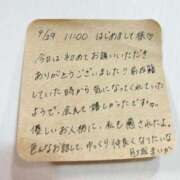 9/29 11:00 はじめまして様♡
今日は初めてお誘いいただき
ありがとうございました!! 前店舗
していた時から気になってくれていた
ようで、とても嬉しかったですო。
優しいお人柄に、私も癒されたよ。
色んなお話して、ゆっくり仲良くなりたいな